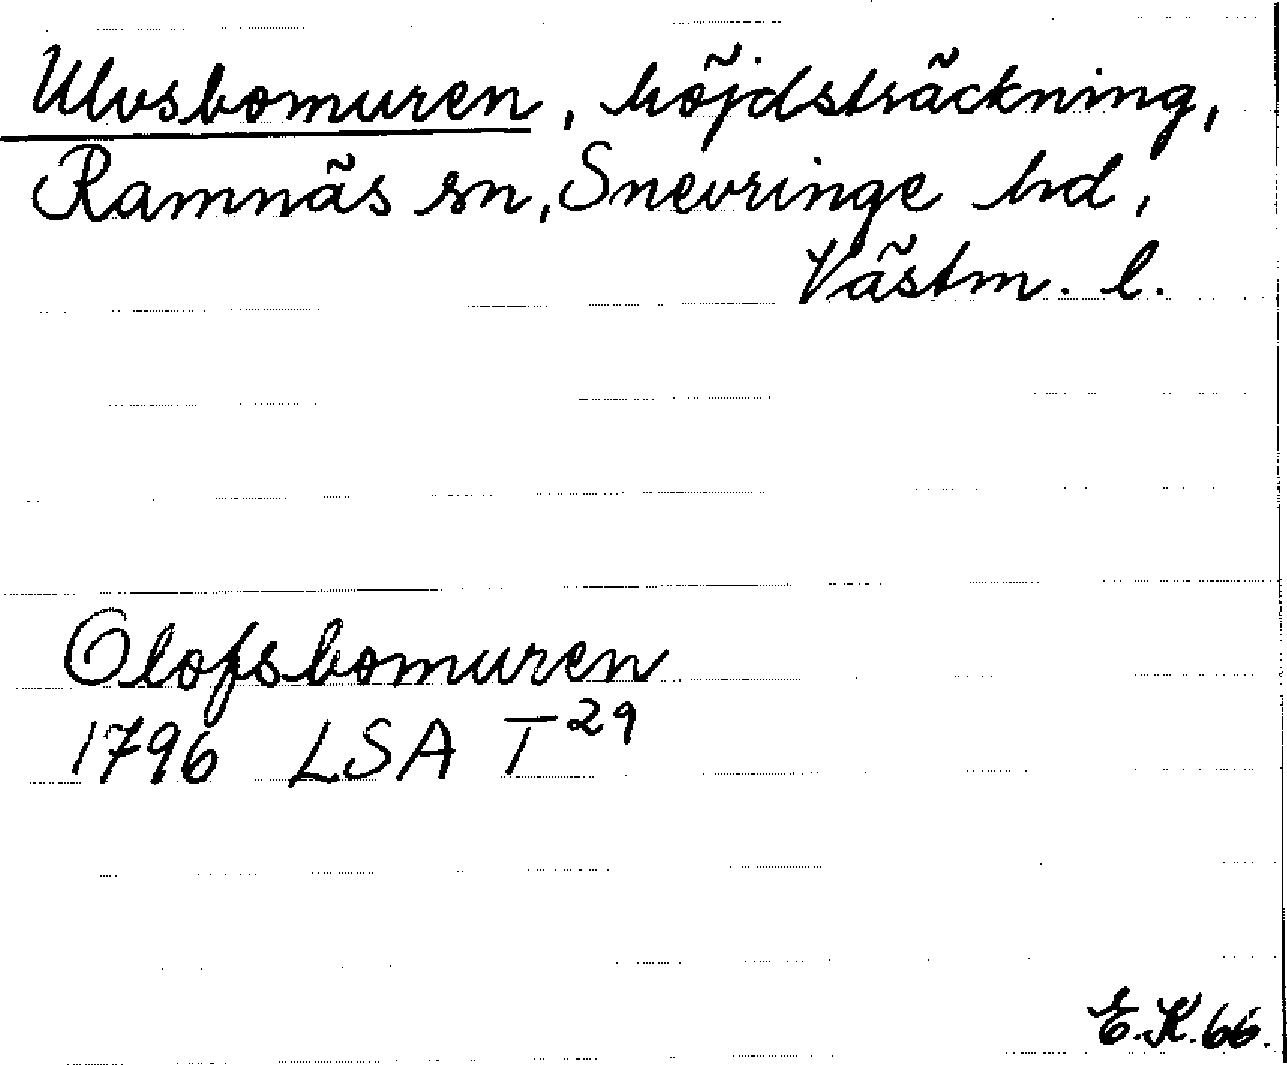 Ulvsbomuren, höjdsträckning,
Ramnäs sn, Snevringe hd,
Västm. l.
Olofsbomuren
1796 LSA T29
E.K.66.